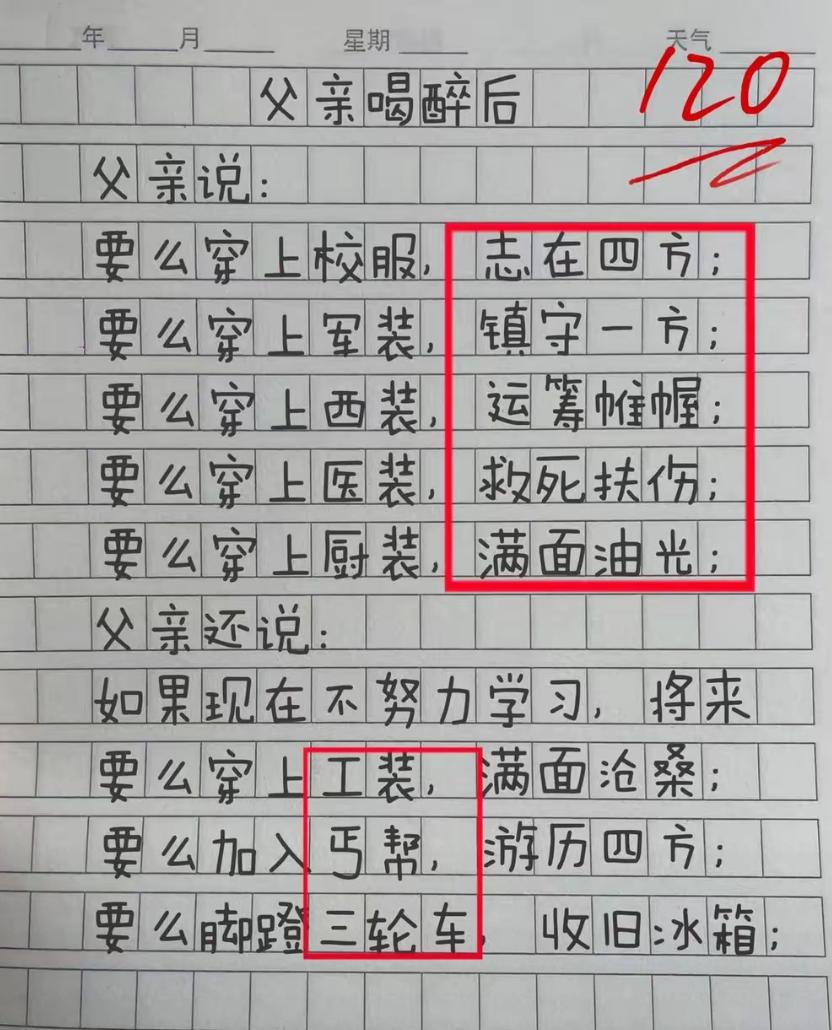 年 月 星期 天气
120
父亲喝醉后
父亲说:
要么穿上校服,志在四方;
要么穿上军装,镇守一方;
要么穿上西装,运筹帷幄;
要么穿上医装,救死扶伤;
要么穿上厨装,满面油光;
父亲还说:
如果现在不努力学习,将来
要么穿上工装,满面沧桑;
要么加入丐帮,游历四方;
要么脚蹬三轮车,收旧冰箱;